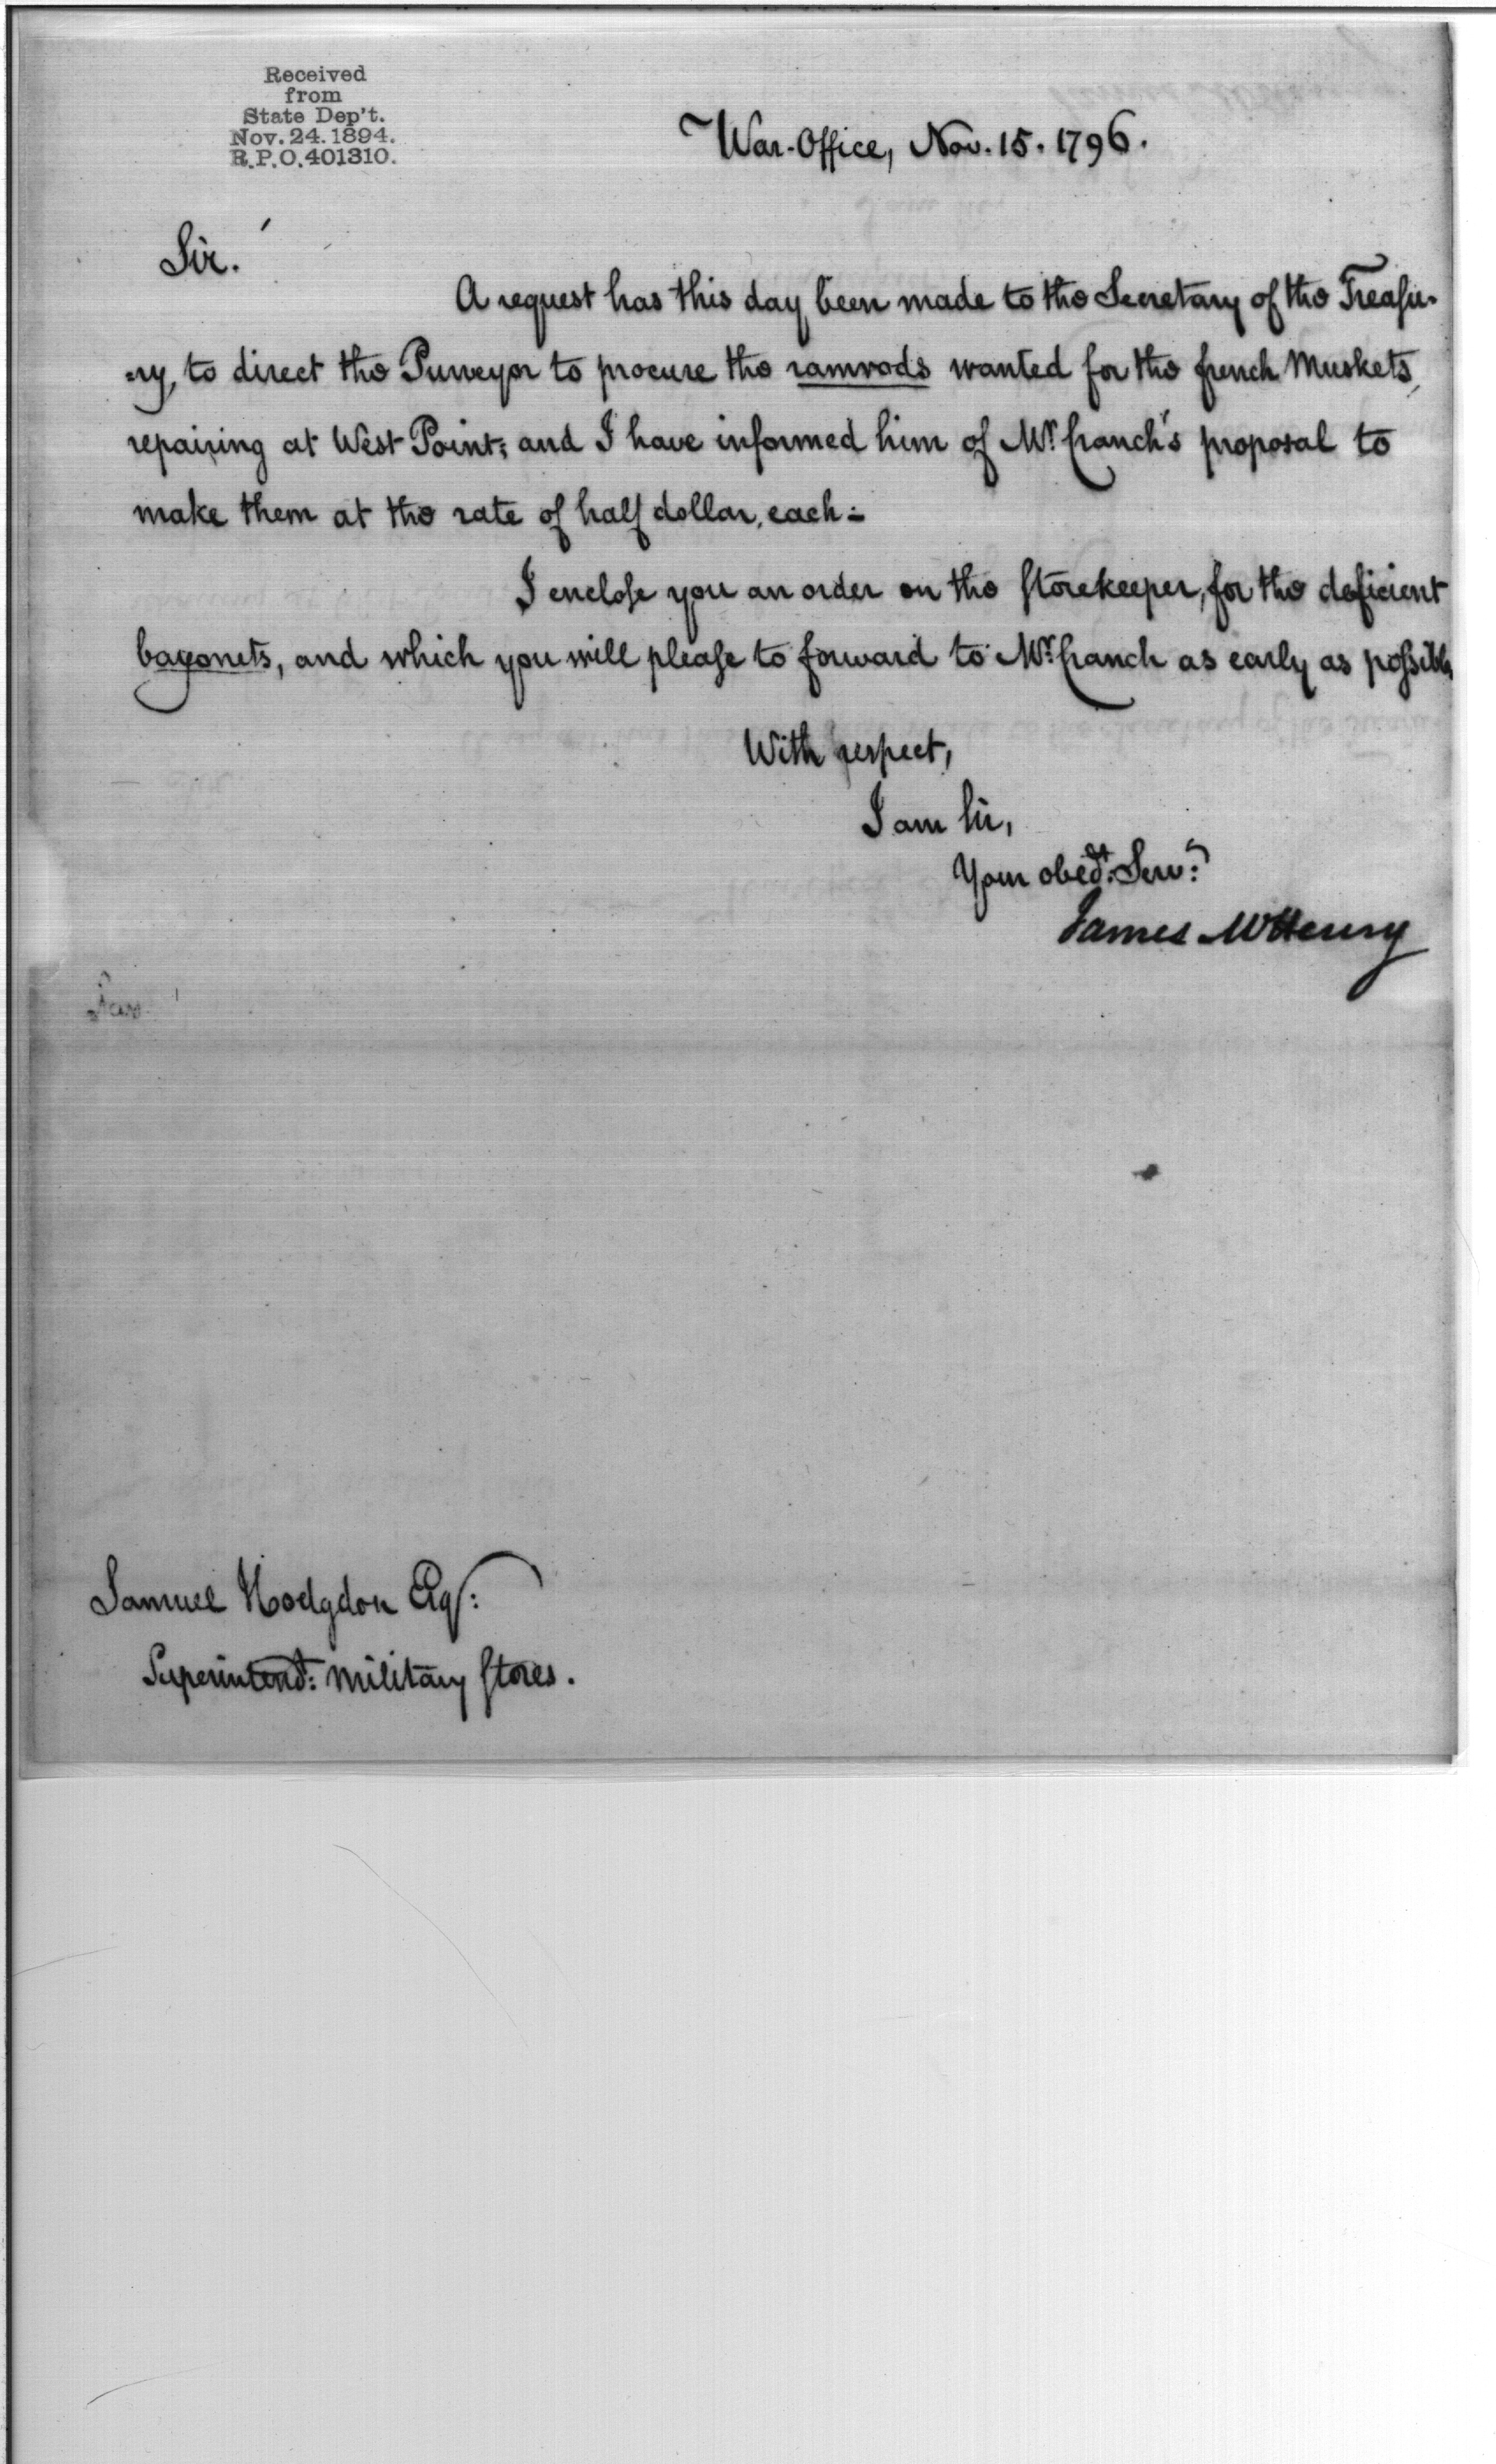 Received
from
State Dep't.
Nov. 24. 1894.
R.P.O. 401310.
War-Office, Nov. 15. 1796.
Sir.
A request has this day been made to the Secretary of the Treasu-
-ry, to direct the Purveyor to procure the ramrods wanted for the french Muskets,
repairing at West-Point; and I have informed him of Mr. Cranch's proposal to
make them at the rate of half dollar, each.
I enclose you an order on the storekeeper, for the deficient
bayonets, and which you will please to forward to Mr. Cranch as early as possible
With respect,
I am Sir,
Your obedt. Servt.
James McHenry
Samuel Hodgdon Esqr:
Superintendt: Military Stores.